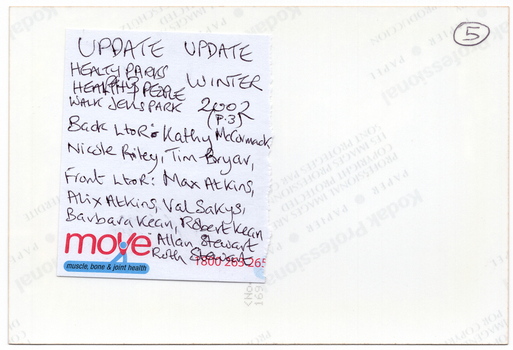 UPDATE UPDATE
HEALTY PARKS
HEALTHY PEOPLE WINTER
WALK JELLS PARK 2002
(P.3)
Back LtoR: Kathy McCormack
Nicole Riley, Tim Bryar,
Front LtoR: Max Atkins,
Alix Atkins, Val Sakys,
Barbara Kean, Robert Kean
Allan Stewart
Ruth Stewart
move
muscle, bone & joint health
1800 263 265
5
Kodak Professional
PAPIER PAPEL